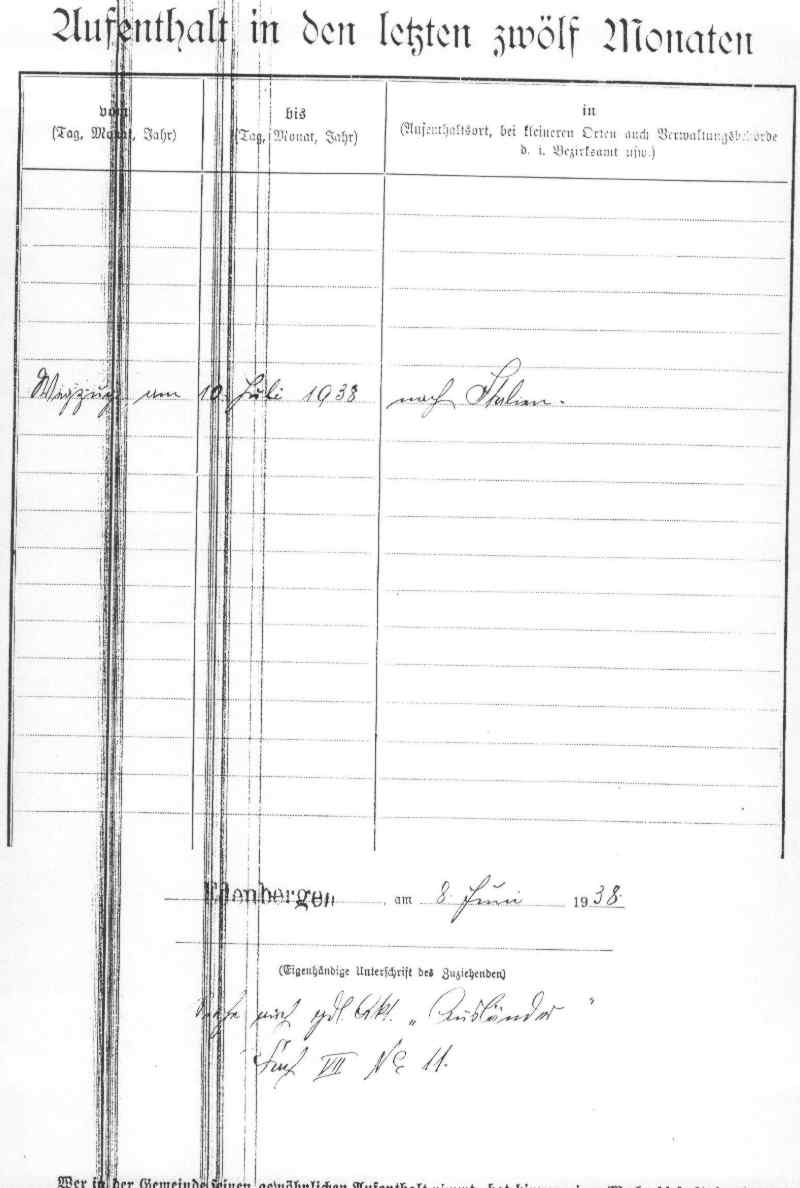 Aufenthalt in den letzten zwölf Monaten
vom bis in
(Tag, Monat, Jahr) (Tag, Monat, Jahr) (Aufenthaltsort, bei kleineren Orten auch Verwaltungsbehörde
d. i. Bezirksamt usw.)
Wegzug am 10. Juli 1938 nach Italien.
am 8. Juni 1938.
(Eigenhändige Unterschrift des Zuziehenden)
Siehe auch gdl. Akt. „Ausländer"
Fach VII No 11.
Wer in der Gemeinde seinen gewöhnlichen Aufenthalt nimmt, hat